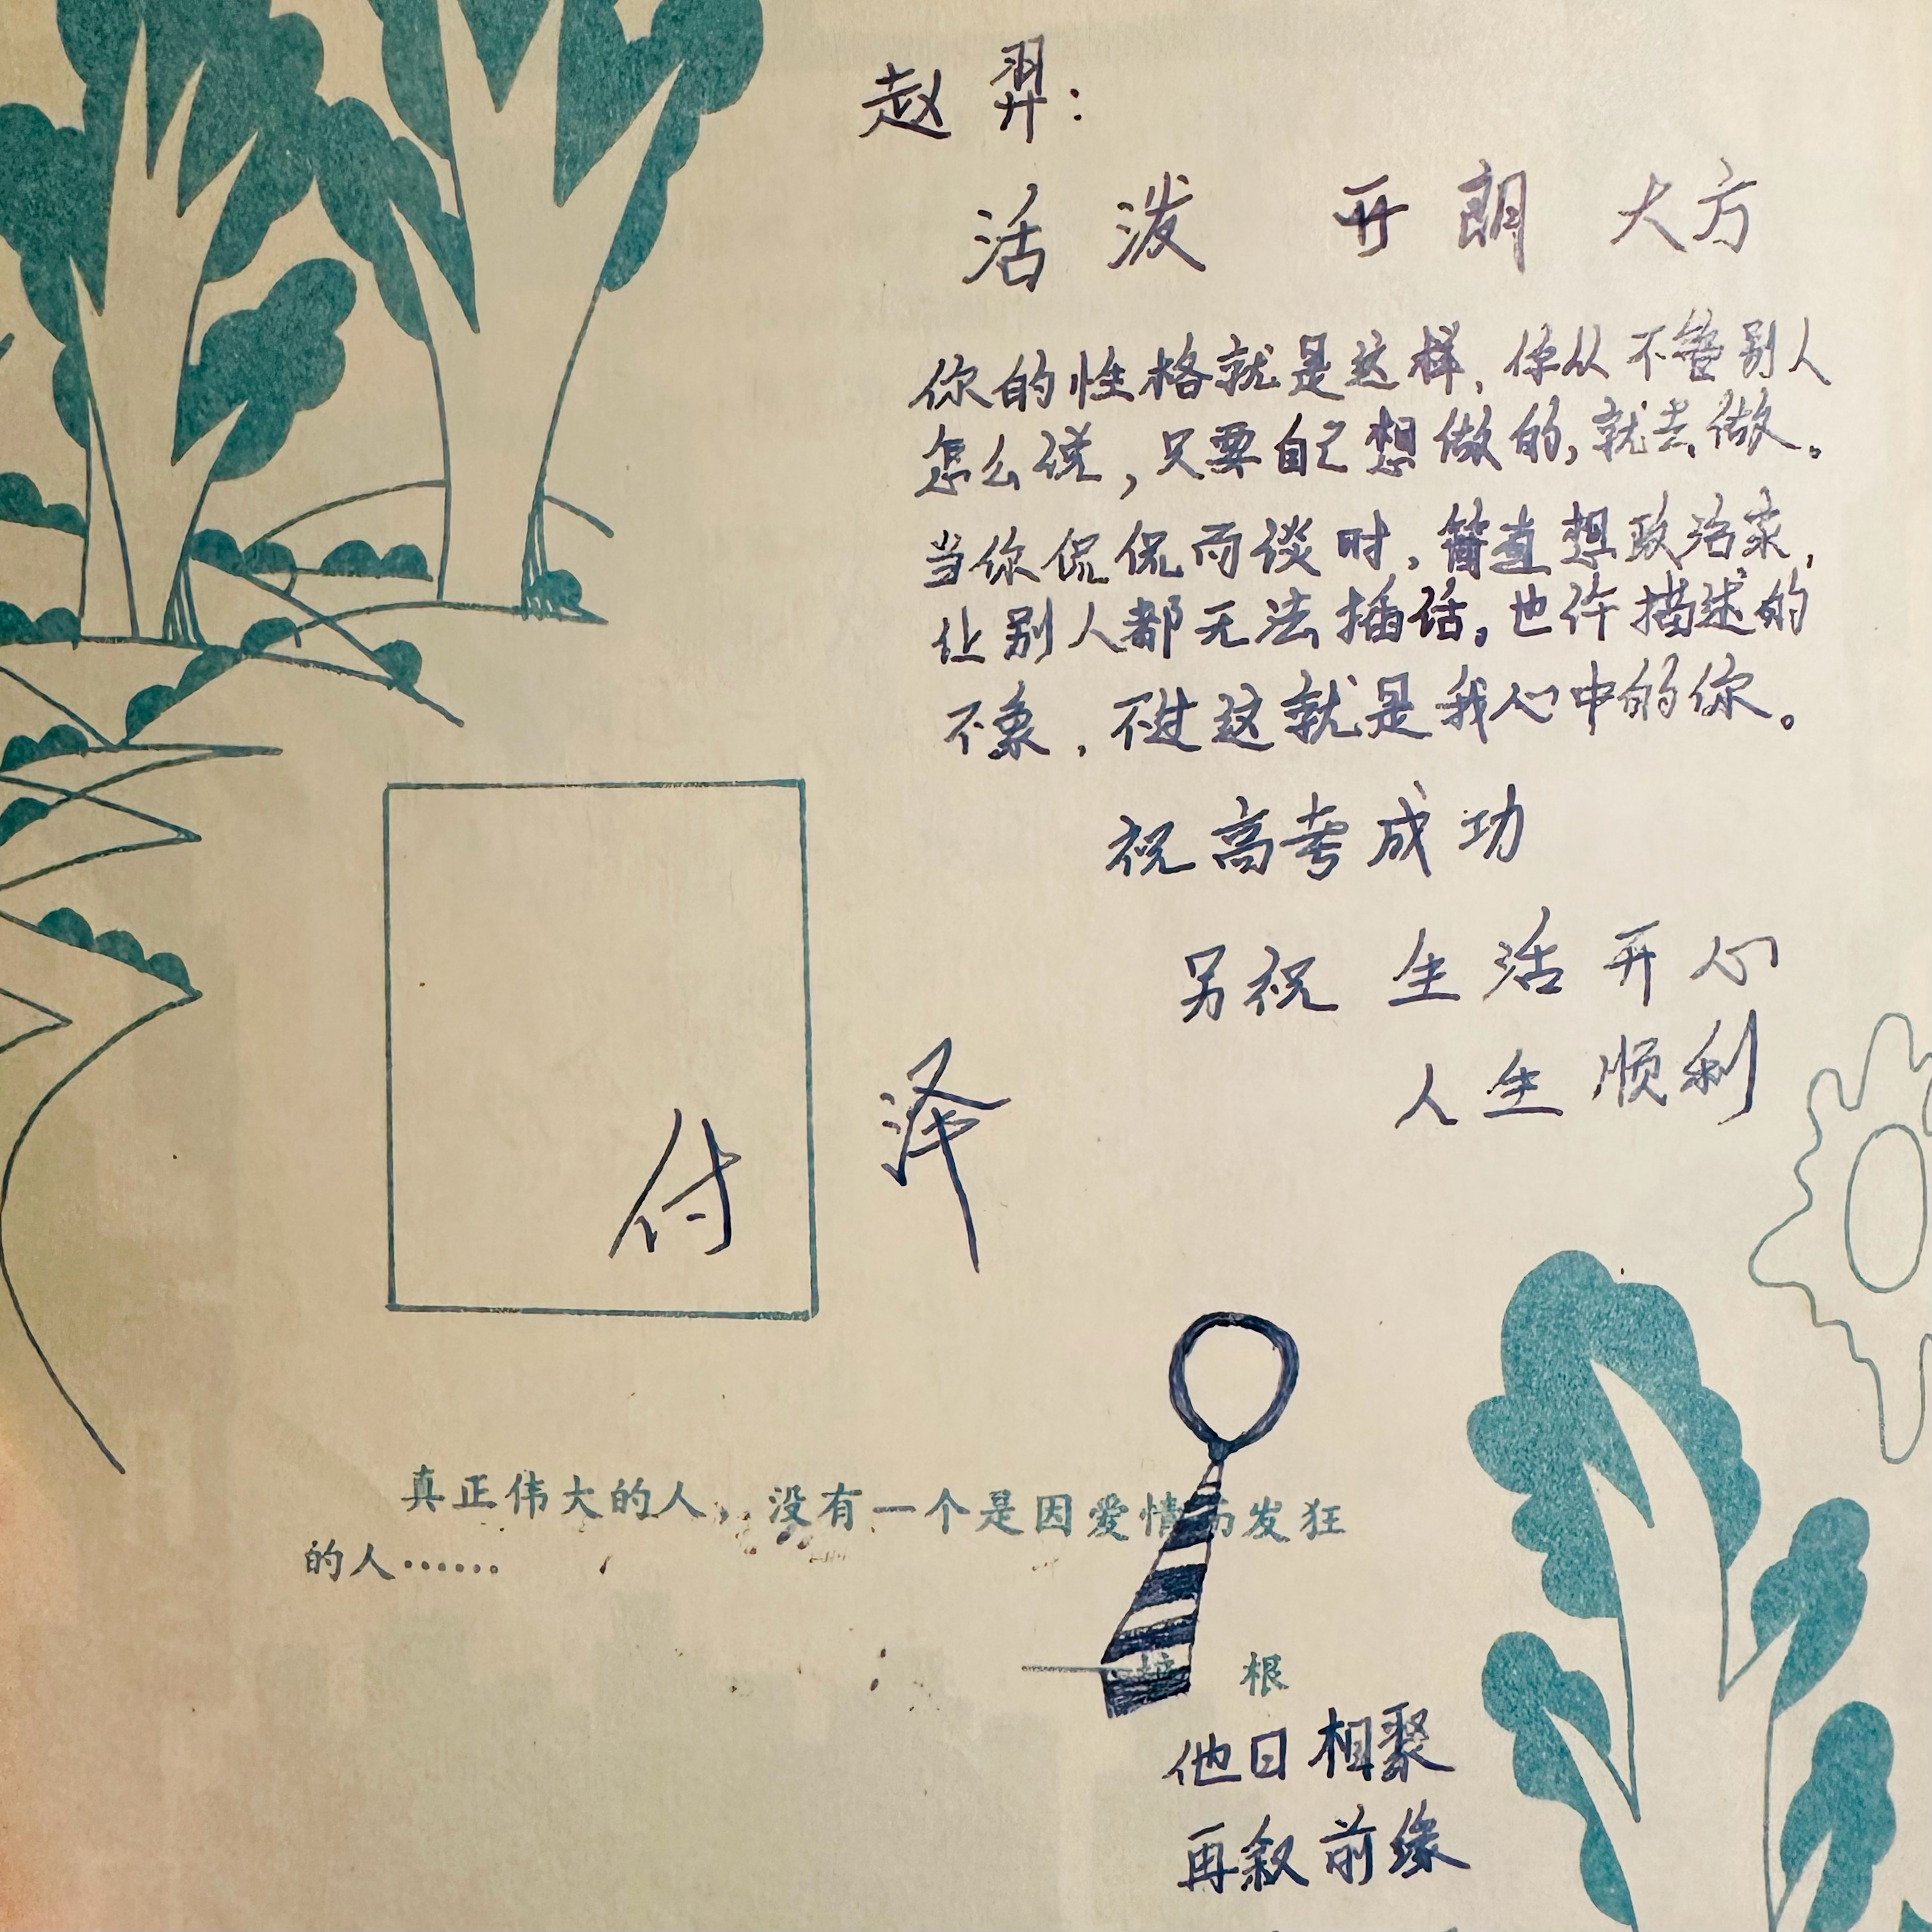 赵羿：
活泼 开朗 大方
你的性格就是这样，你从不管别人
怎么说，只要自己想做的，就去做。
当你侃侃而谈时，简直想政治家，
让别人都无法插话。也许描述的
不象，不过这就是我心中的你。
祝高考成功
另祝 生活开心
人生顺利
付泽
真正伟大的人，没有一个是因爱情而发狂
的人……
—— 根
他日相聚
再叙前缘